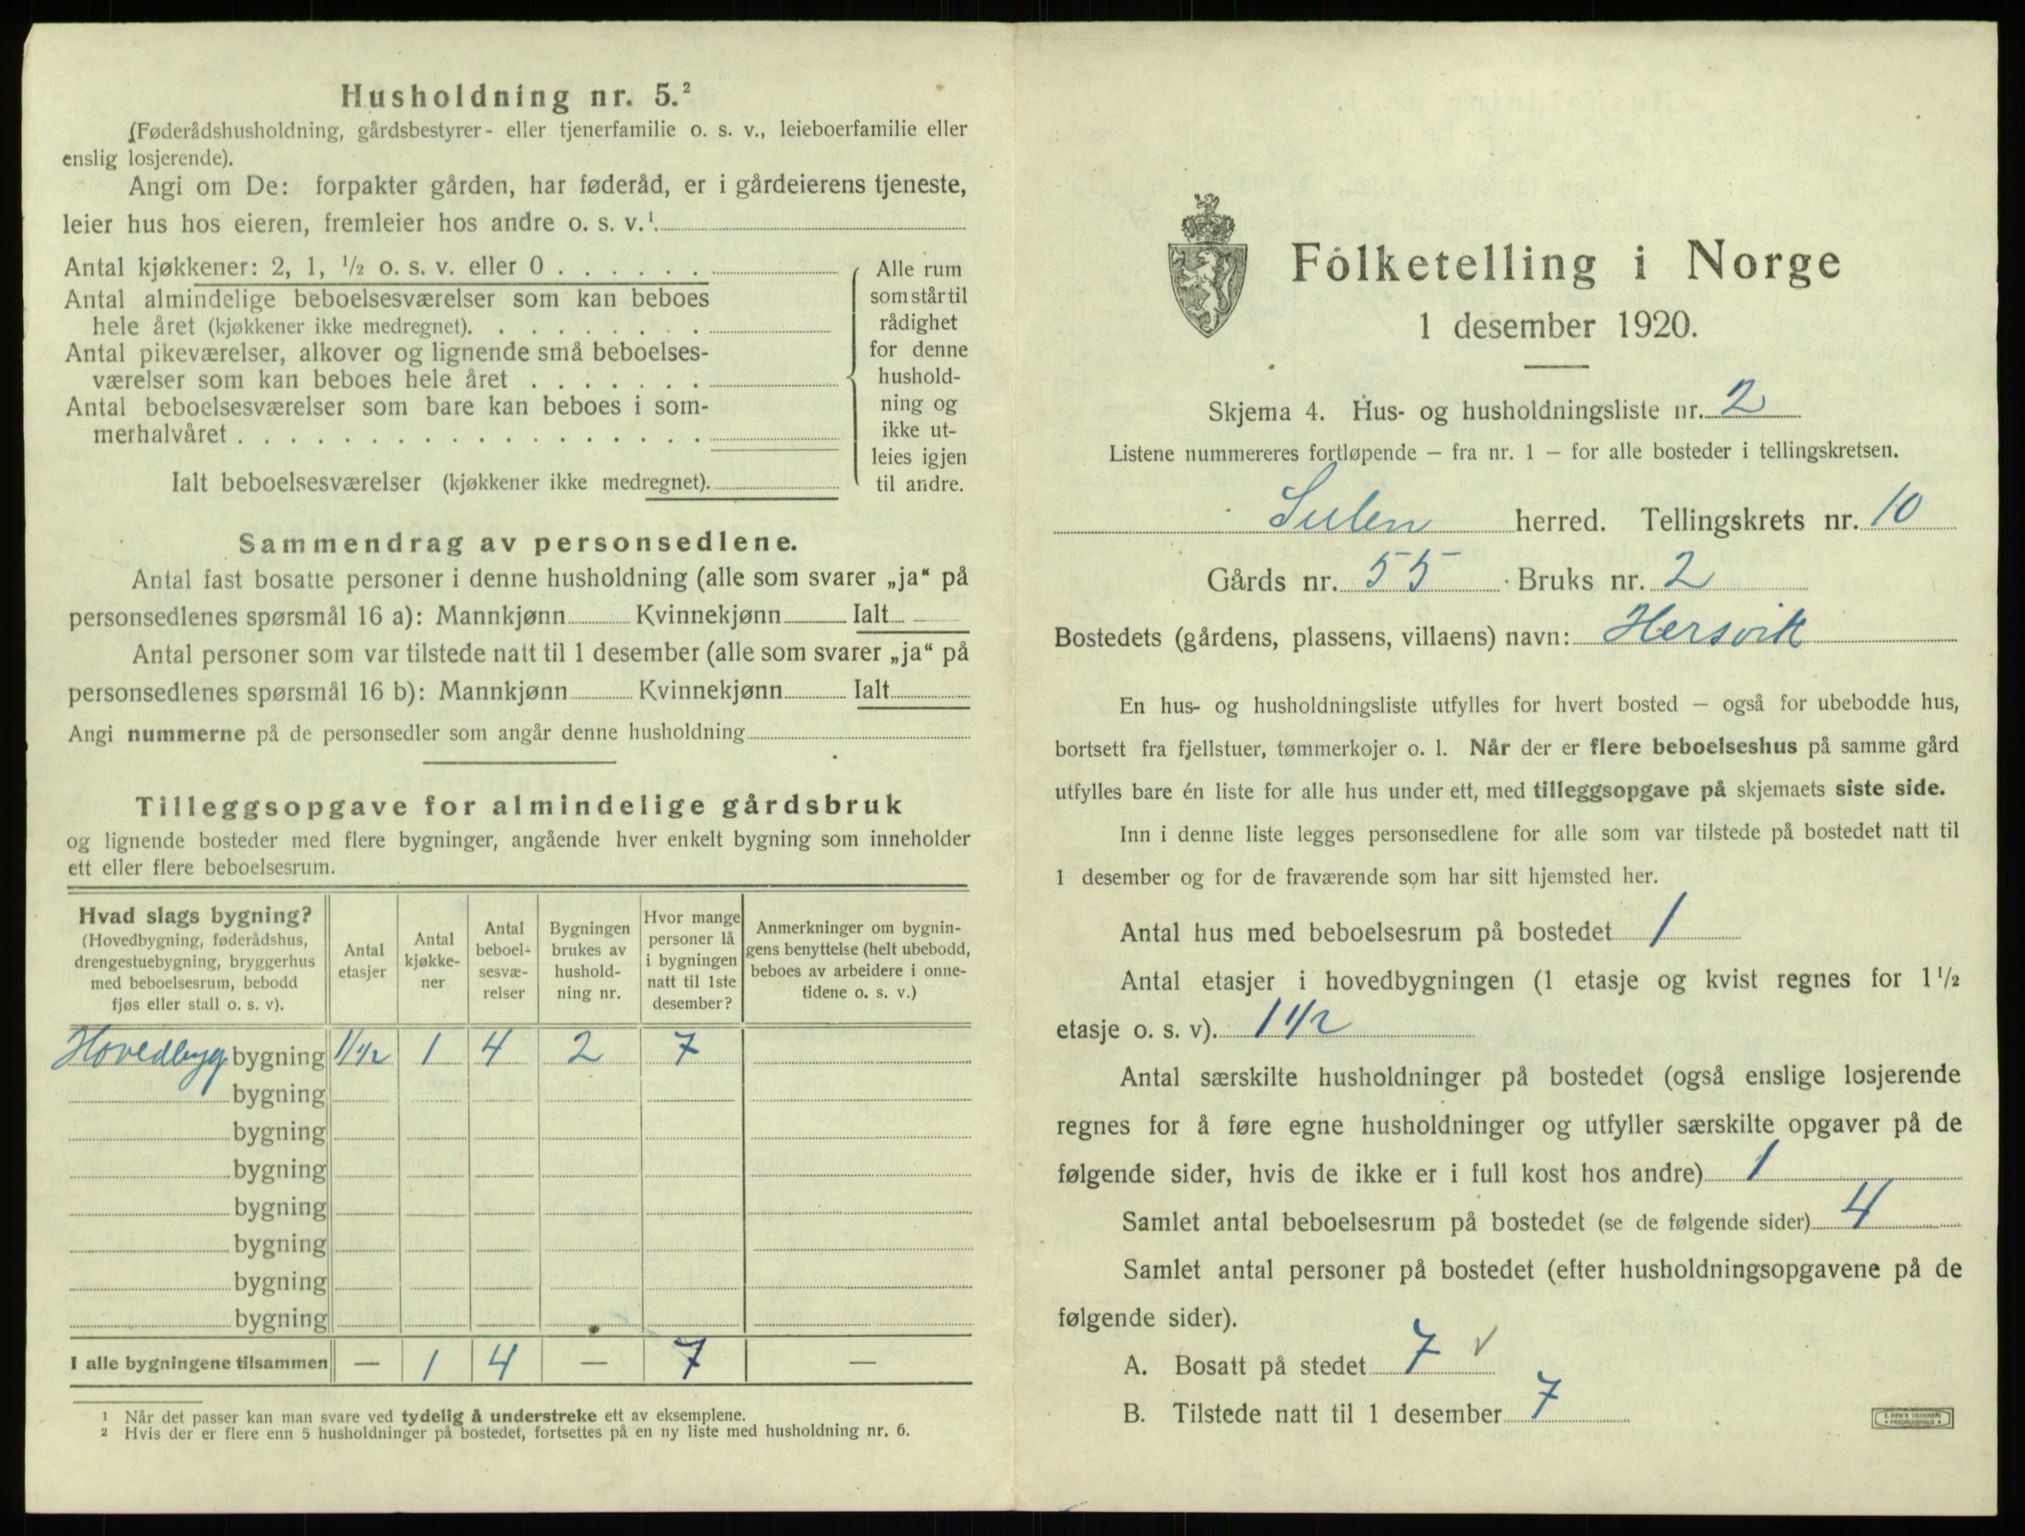 Husholdning nr. 5.²
(Føderådshusholdning, gårdsbestyrer- eller tjenerfamilie o. s. v., leieboerfamilie eller
enslig losjerende).
Angi om De: forpakter gården, har føderåd, er i gårdeierens tjeneste,
leier hus hos eieren, fremleier hos andre o. s. v.¹.
Antal kjøkkener: 2, 1, ½ o. s. v. eller 0 . . . . . .
Antal almindelige beboelsesværelser som kan beboes
hele året (kjøkkener ikke medregnet). . . . . . . . .
Antal pikeværelser, alkover og lignende små beboelses-
værelser som kan beboes hele året . . . . . . .
Antal beboelsesværelser som bare kan beboes i som-
merhalvåret . . . . . . . . . . . . . . . . . .
Ialt beboelsesværelser (kjøkkener ikke medregnet).
Alle rum
som står til
rådighet
for denne
hushold-
ning og
ikke ut-
leies igjen
til andre.
Sammendrag av personsedlene.
Antal fast bosatte personer i denne husholdning (alle som svarer „ja“ på
personsedlenes spørsmål 16 a): Mannkjønn Kvinnekjønn Ialt
Antal personer som var tilstede natt til 1 desember (alle som svarer „ja“ på
personsedlenes spørsmål 16 b): Mannkjønn Kvinnekjønn Ialt
Angi nummerne på de personsedler som angår denne husholdning
Tilleggsopgave for almindelige gårdsbruk
og lignende bosteder med flere bygninger, angående hver enkelt bygning som inneholder
ett eller flere beboelsesrum.
Hvad slags bygning?
(Hovedbygning, føderådshus,
drengestuebygning, bryggerhus
med beboelsesrum, bebodd
fjøs eller stall o. s. v).
Antal
etasjer
Antal
kjøkke-
ner
Antal
beboel-
sesvæ-
relser
Bygningen
brukes av
hushold-
ning nr.
Hvor mange
personer lå
i bygningen
natt til 1ste
desember?
Anmerkninger om bygnin-
gens benyttelse (helt ubebodd,
beboes av arbeidere i onne-
tidene o. s. v.)
Hovedbyg bygning 1 1/2 1 4 2 7
bygning
bygning
bygning
bygning
bygning
bygning
bygning
I alle bygningene tilsammen — 1 4 — 7 —
¹ Når det passer kan man svare ved tydelig å understreke ett av eksemplene.
² Hvis der er flere enn 5 husholdninger på bostedet, fortsettes på en ny liste med husholdning nr. 6.
Folketelling i Norge
1 desember 1920.
Skjema 4. Hus- og husholdningsliste nr. 2
Listene nummereres fortløpende — fra nr. 1 — for alle bosteder i tellingskretsen.
Sulen herred. Tellingskrets nr. 10
Gårds nr. 55 Bruks nr. 2
Bostedets (gårdens, plassens, villaens) navn: Hersvik
En hus- og husholdningsliste utfylles for hvert bosted — også for ubebodde hus,
bortsett fra fjellstuer, tømmerkojer o. l. Når der er flere beboelseshus på samme gård
utfylles bare én liste for alle hus under ett, med tilleggsopgave på skjemaets siste side.
Inn i denne liste legges personsedlene for alle som var tilstede på bostedet natt til
1 desember og for de fraværende som har sitt hjemsted her.
Antal hus med beboelsesrum på bostedet 1
Antal etasjer i hovedbygningen (1 etasje og kvist regnes for 1 ½
etasje o. s. v). 1 1/2
Antal særskilte husholdninger på bostedet (også enslige losjerende
regnes for å føre egne husholdninger og utfyller særskilte opgaver på de
følgende sider, hvis de ikke er i full kost hos andre) 1
Samlet antal beboelsesrum på bostedet (se de følgende sider) 4
Samlet antal personer på bostedet (efter husholdningsopgavene på de
følgende sider).
A. Bosatt på stedet 7 ✓
B. Tilstede natt til 1 desember 7